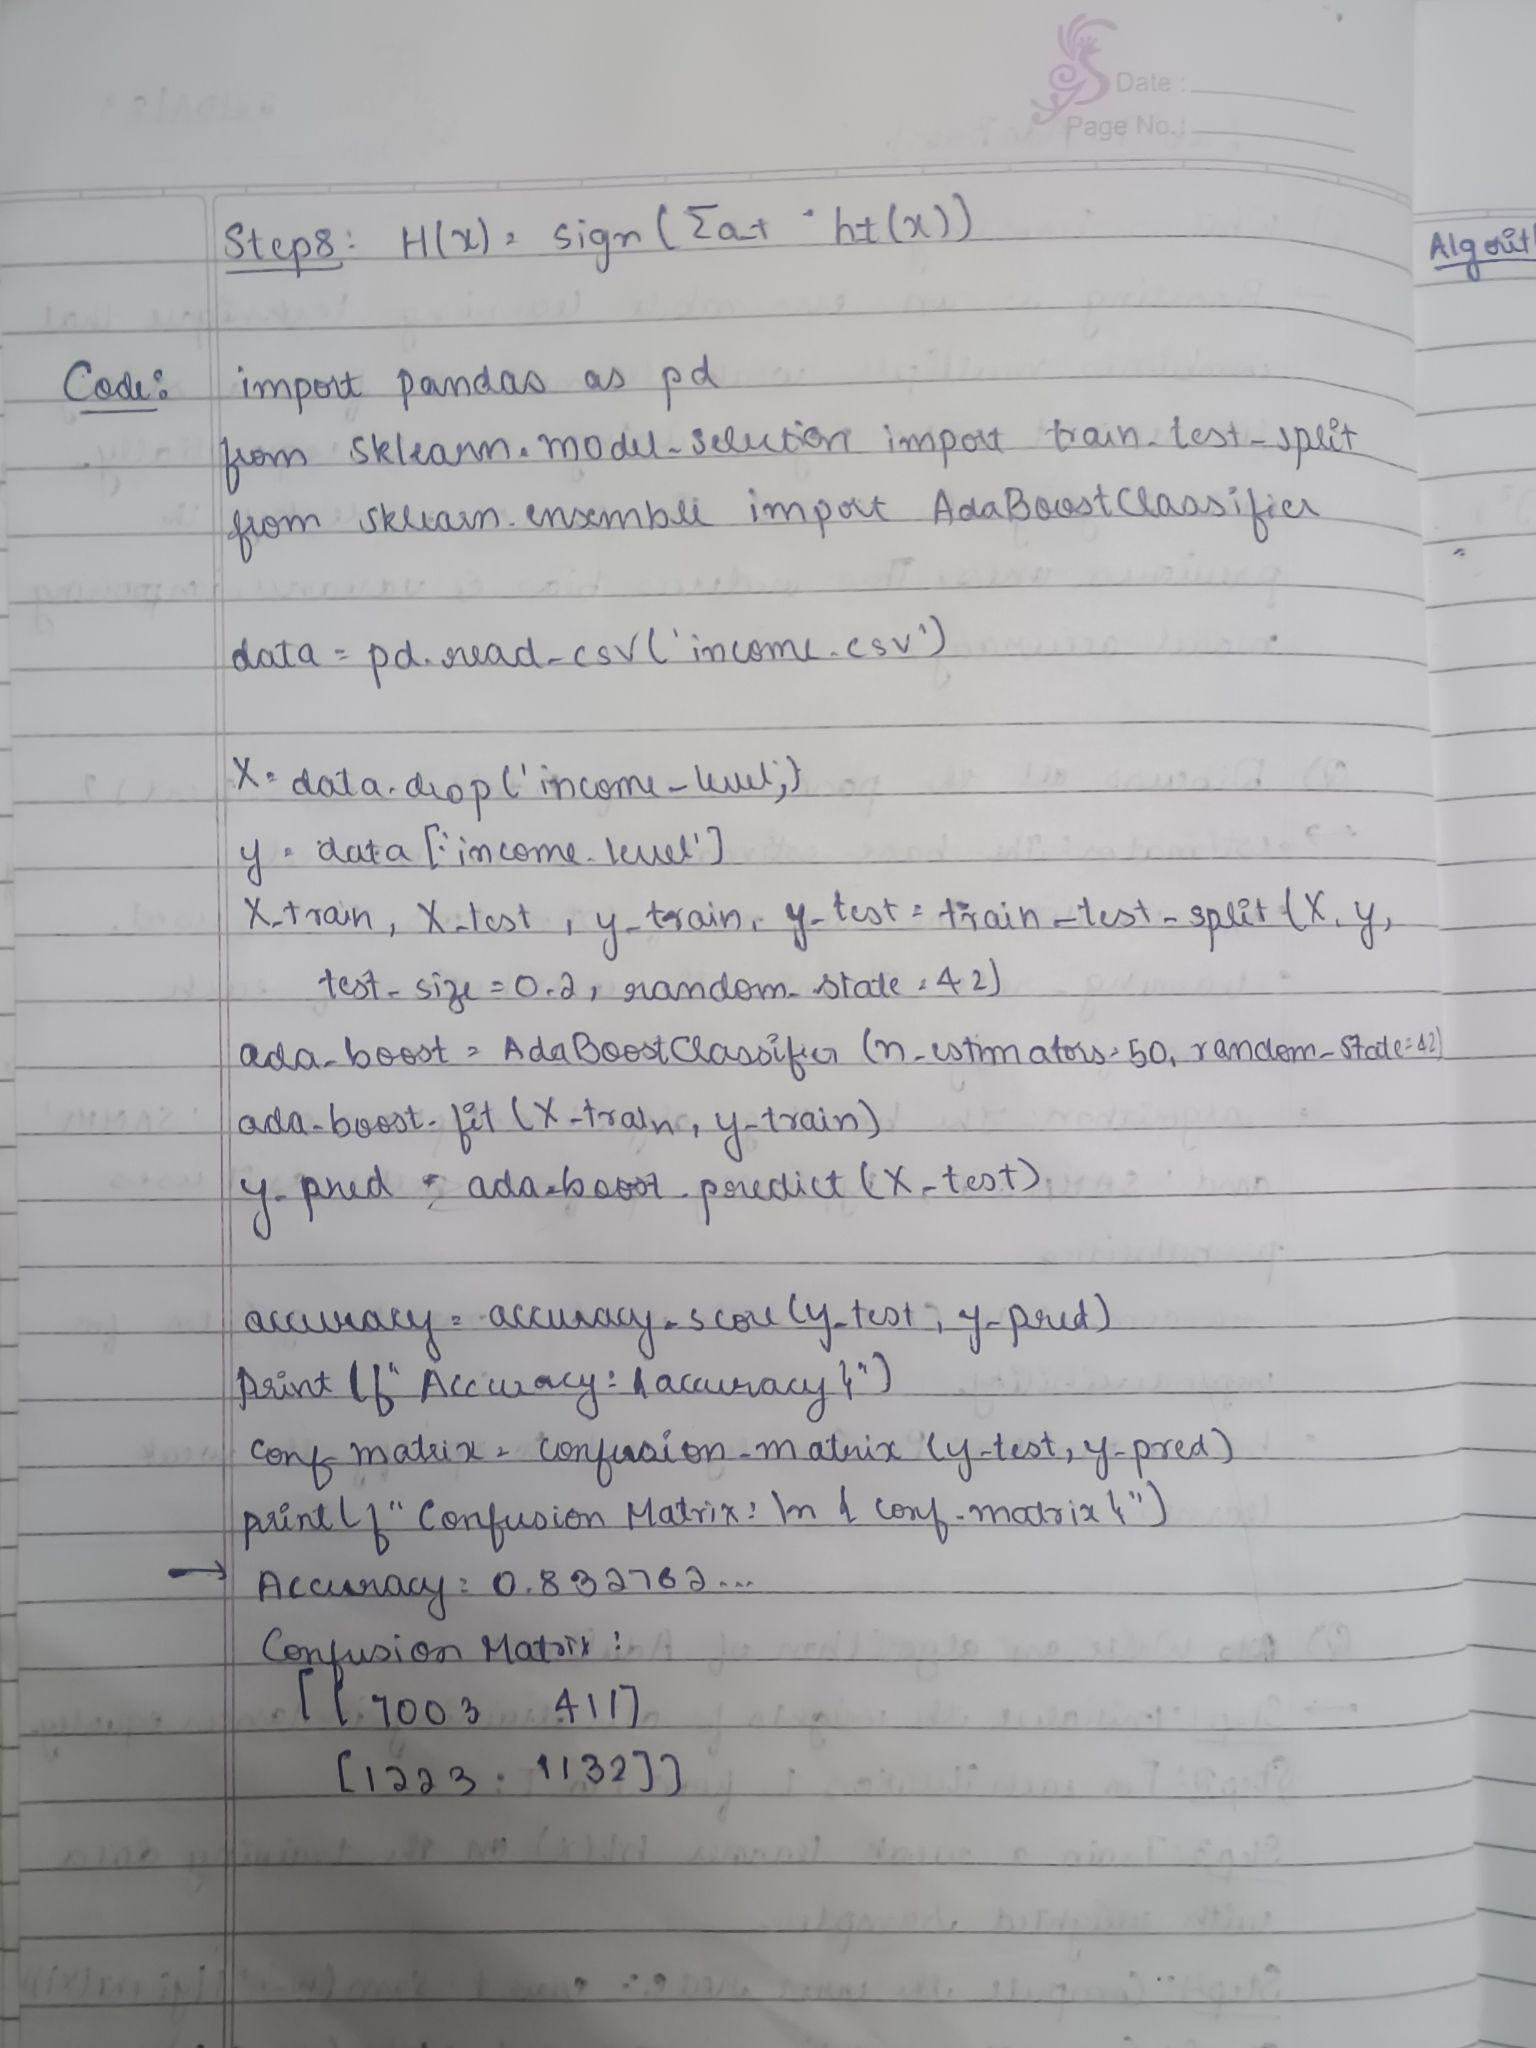 Date :
Page No. :
Step8: H(x) = sign(Σat · ht(x))
Algorit
Code: import pandas as pd
from sklearn.model_selection import train_test_split
from sklearn.ensemble import AdaBoostClassifier
data = pd.read_csv('income.csv')
X = data.drop('income_level',)
y = data['income_level']
X_train, X_test, y_train, y_test = train_test_split(X, y,
test_size = 0.2, random_state = 42)
ada_boost = AdaBoostClassifier (n_estimators=50, random_state=42)
ada_boost.fit (X_train, y_train)
y_pred = ada_boost.predict (X_test)
accuracy = accuracy_score (y_test, y_pred)
Print (f"Accuracy: {accuracy}")
conf_matrix = confusion_matrix (y_test, y_pred)
print(f"Confusion Matrix: \n {conf_matrix}")
→ Accuracy: 0.832762...
Confusion Matrix:
[[7003 411]
[1223 1132]]